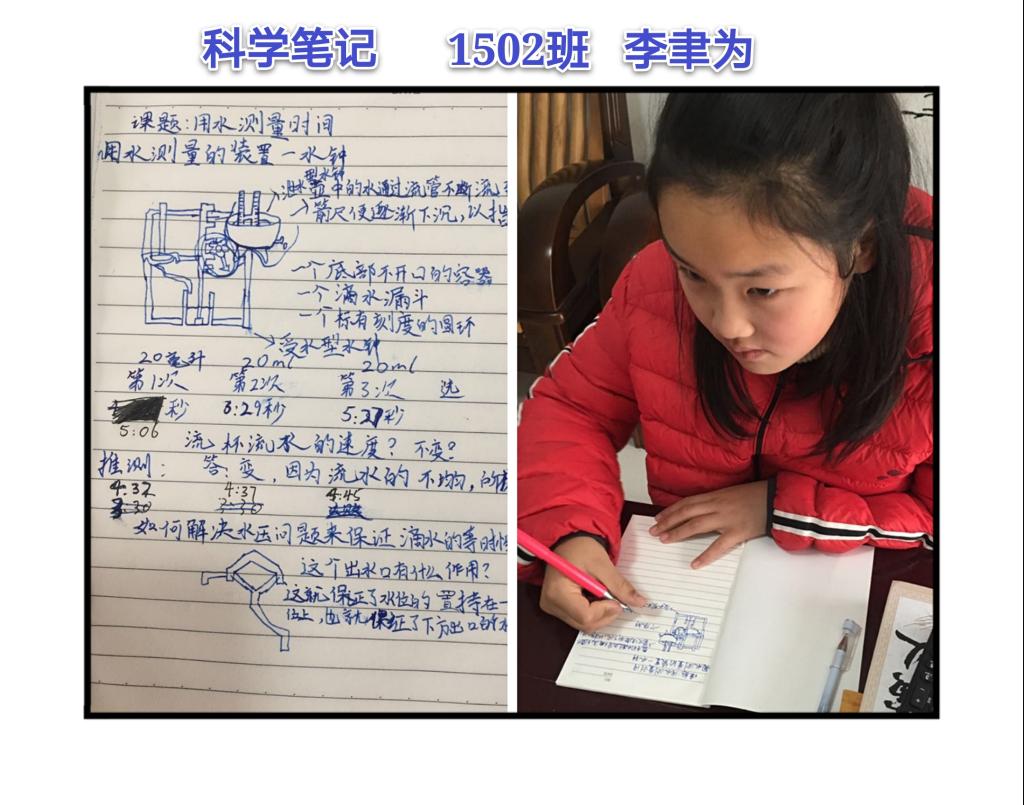 科学笔记 1502班 李聿为
课题:用水测量时间
用水测量的装置一水钟
型水钟
泄水壶中的水通过流管不断流
箭尺便逐渐下沉,以指
一个底部不开口的容器
一个滴水漏斗
一个标有刻度的圆环
受水型水钟
20毫升 20ml 20ml
第1次 第2次 第3次 选
秒 3:29秒 5:27秒
5:06
流杯流水的速度?不变?
推测: 答:变,因为流水的不均匀,的
4:32 4:37 4:45
3:30 3:30
如何解决水压问题来保证滴水的等时性
这个出水口有什么作用?
这就保证了水位的置持在一
位上,也就保证了下方出口的水